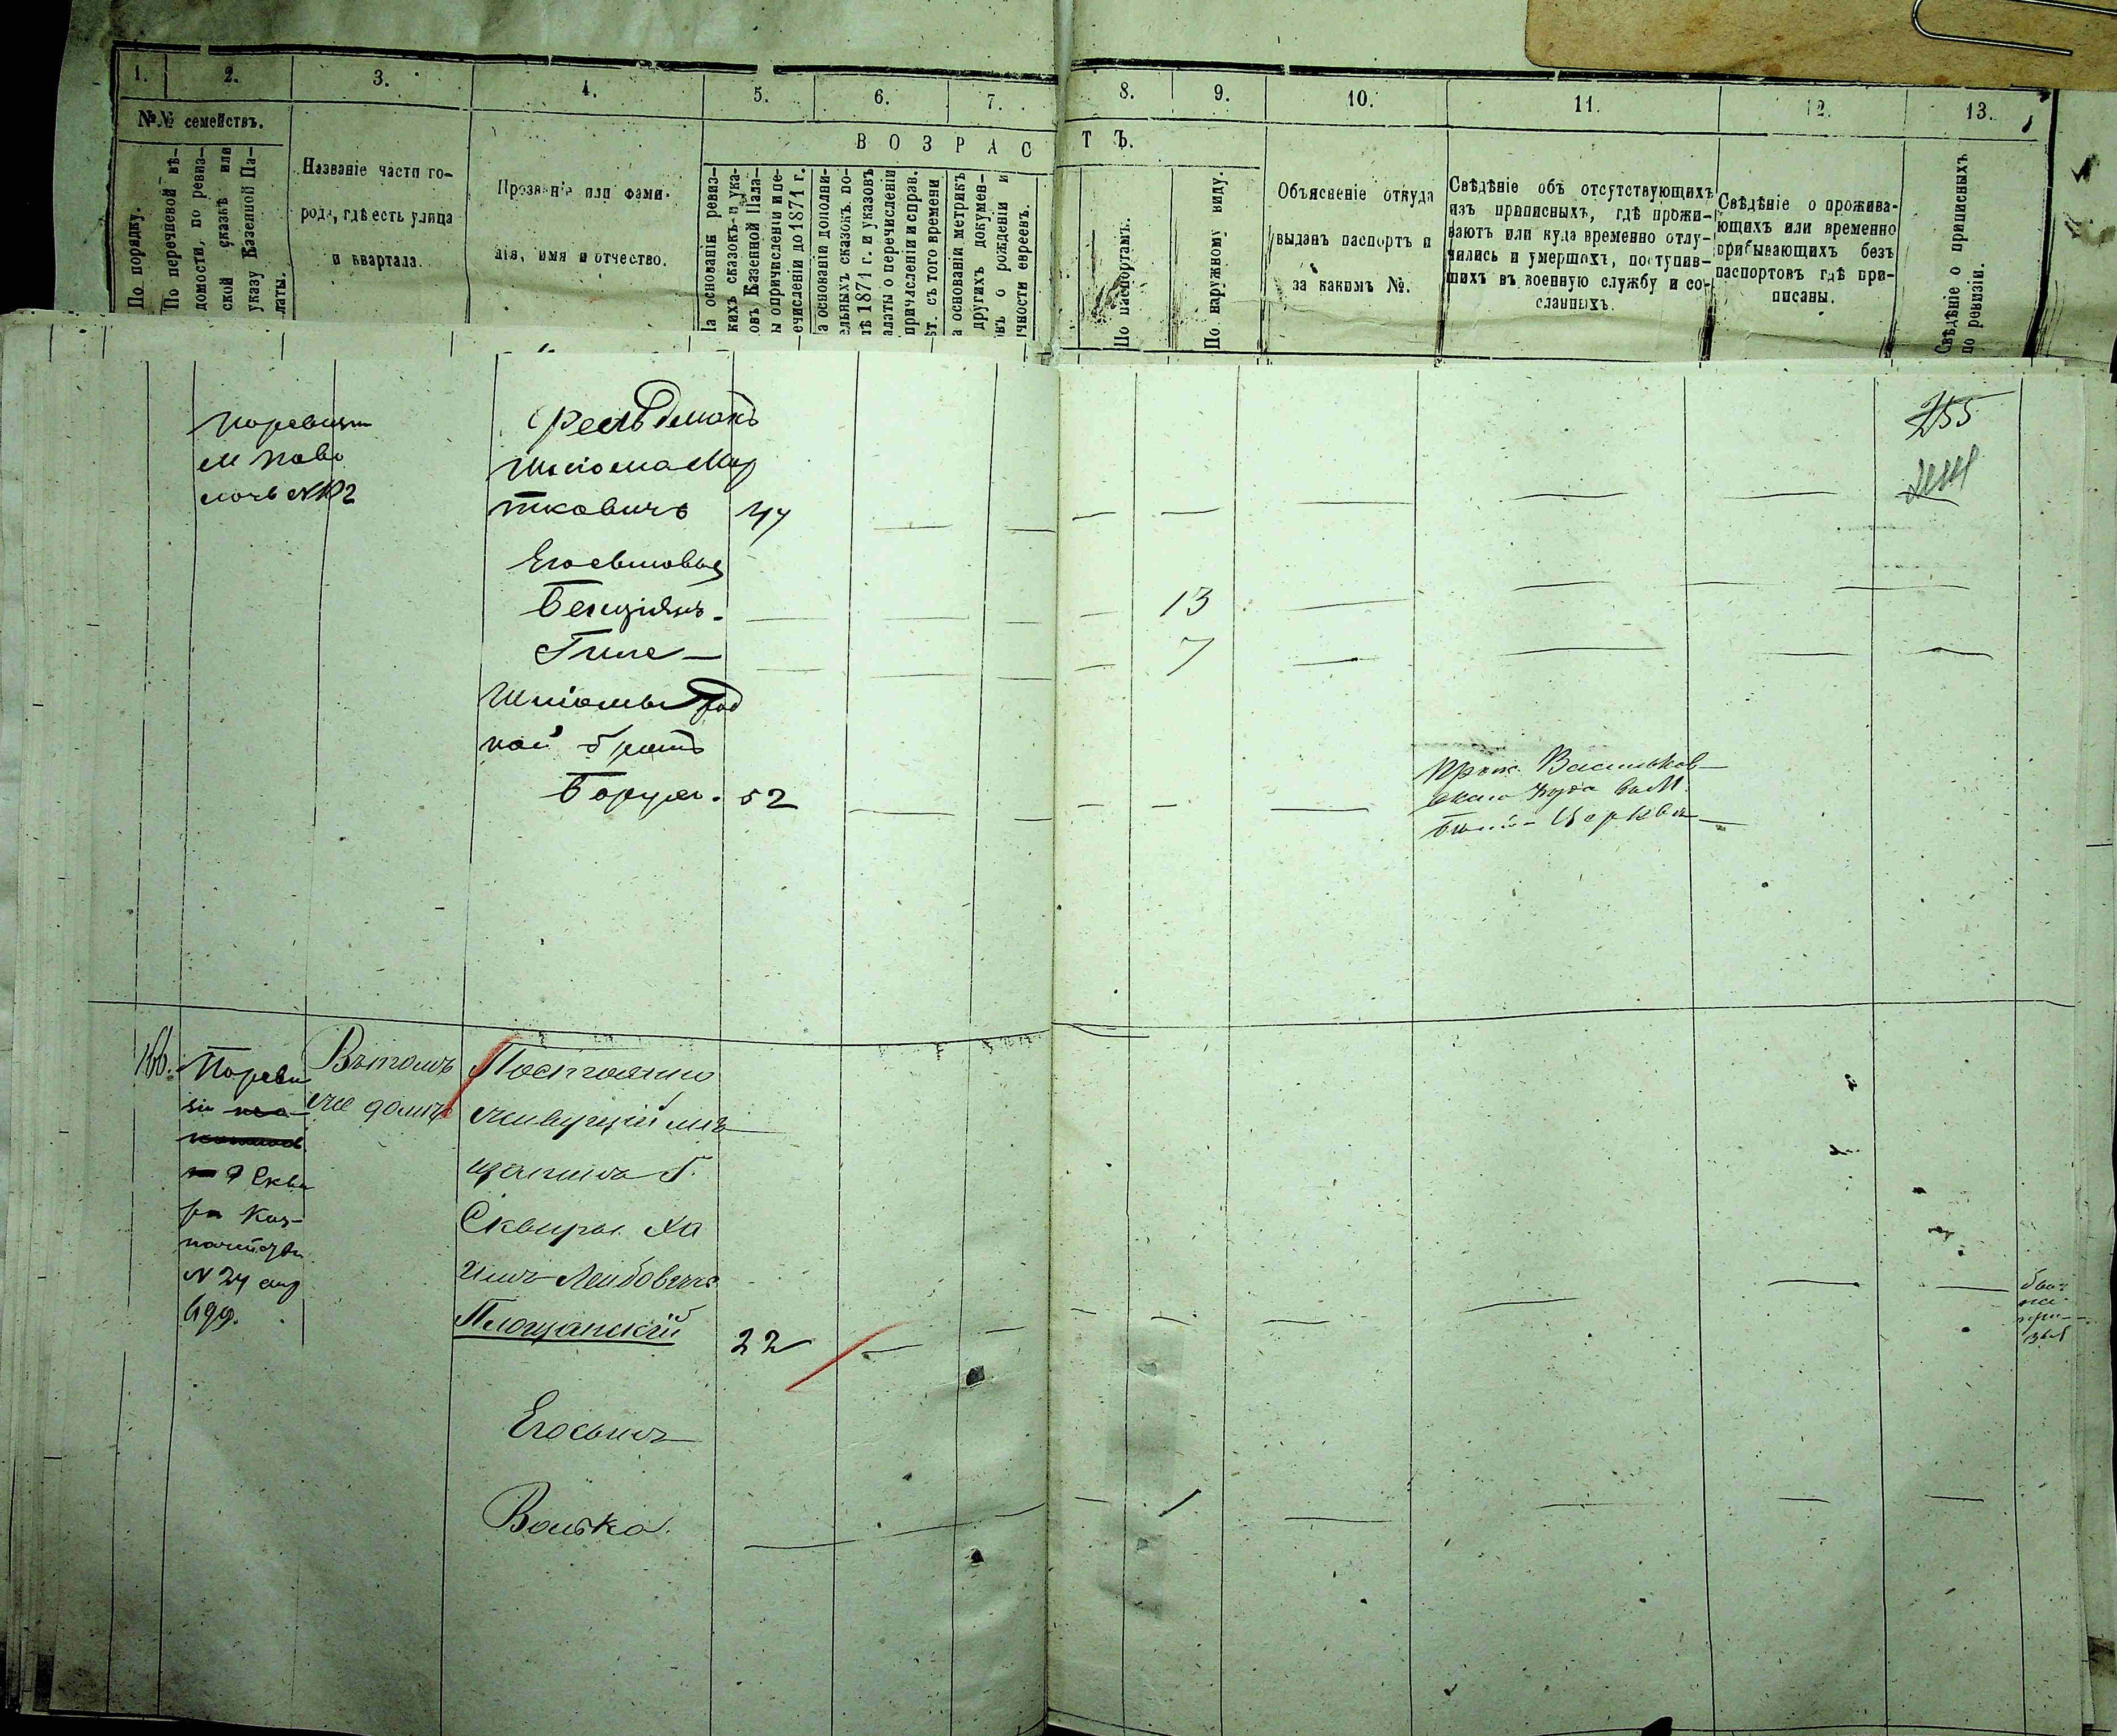 1.
2.
3.
4.
5.
6.
7.
8.
9.
10.
11.
12.
13.
№№ семействъ.
По порядку.
По перечневой вѣ-
домости, по ревиз-
ской сказкѣ или
указу Казенной Па-
латы.
Названіе части го-
рода, гдѣ есть улица
и квартала.
Прозваніе или фами-
лія, имя и отчество.
ВОЗРАС
ТЪ.
а основаніи ревиз-
кихъ сказокъ и ука-
овъ Казенной Пала-
ы о причисленіи и пе-
ечисленіи до 1871 г.
а основаніи дополни-
ельныхъ сказокъ по-
лѣ 1871 г. и указовъ
алаты о перечисленіи
причисленіи и справ.
ѣт. съ того времени
а основаніи метрикъ
другихъ докумен-
овъ о рожденіи и
ичности евреевъ.
По паспортамъ.
По наружному виду.
Объясненіе откуда
выданъ паспортъ и
за какимъ №.
Свѣдѣніе объ отсутствующихъ
изъ приписныхъ, гдѣ прожи-
ваютъ или куда временно отлу-
чились и умершихъ, поступив-
шихъ въ военную службу и со-
сланныхъ.
Свѣдѣніе о прожива-
ющихъ или временно
прибывающихъ безъ
паспортовъ гдѣ при-
писаны.
Свѣдѣніе о приписныхъ
по ревизіи.
По ревизіи
м Паво
лочь № 102
Фельдманъ
Шліома Мор
тковичъ 47
255
Его сыновья
Бенціонъ - 13
Гилe - 7
Шліомы род
ной братъ
Борух. 52
Прож. Васильков-
скаго уѣзда въ М.
Бѣлой-Церкви
166. По реви
зіи
г Скви
ра Каз-
начейства
№ 24
Въ томъ
же домѣ
Постоянно
живущій мѣ
щанинъ г.
Сквиры Ха
имъ Лейбовичъ
Площанскій 22
Его сынъ
Волько. 1